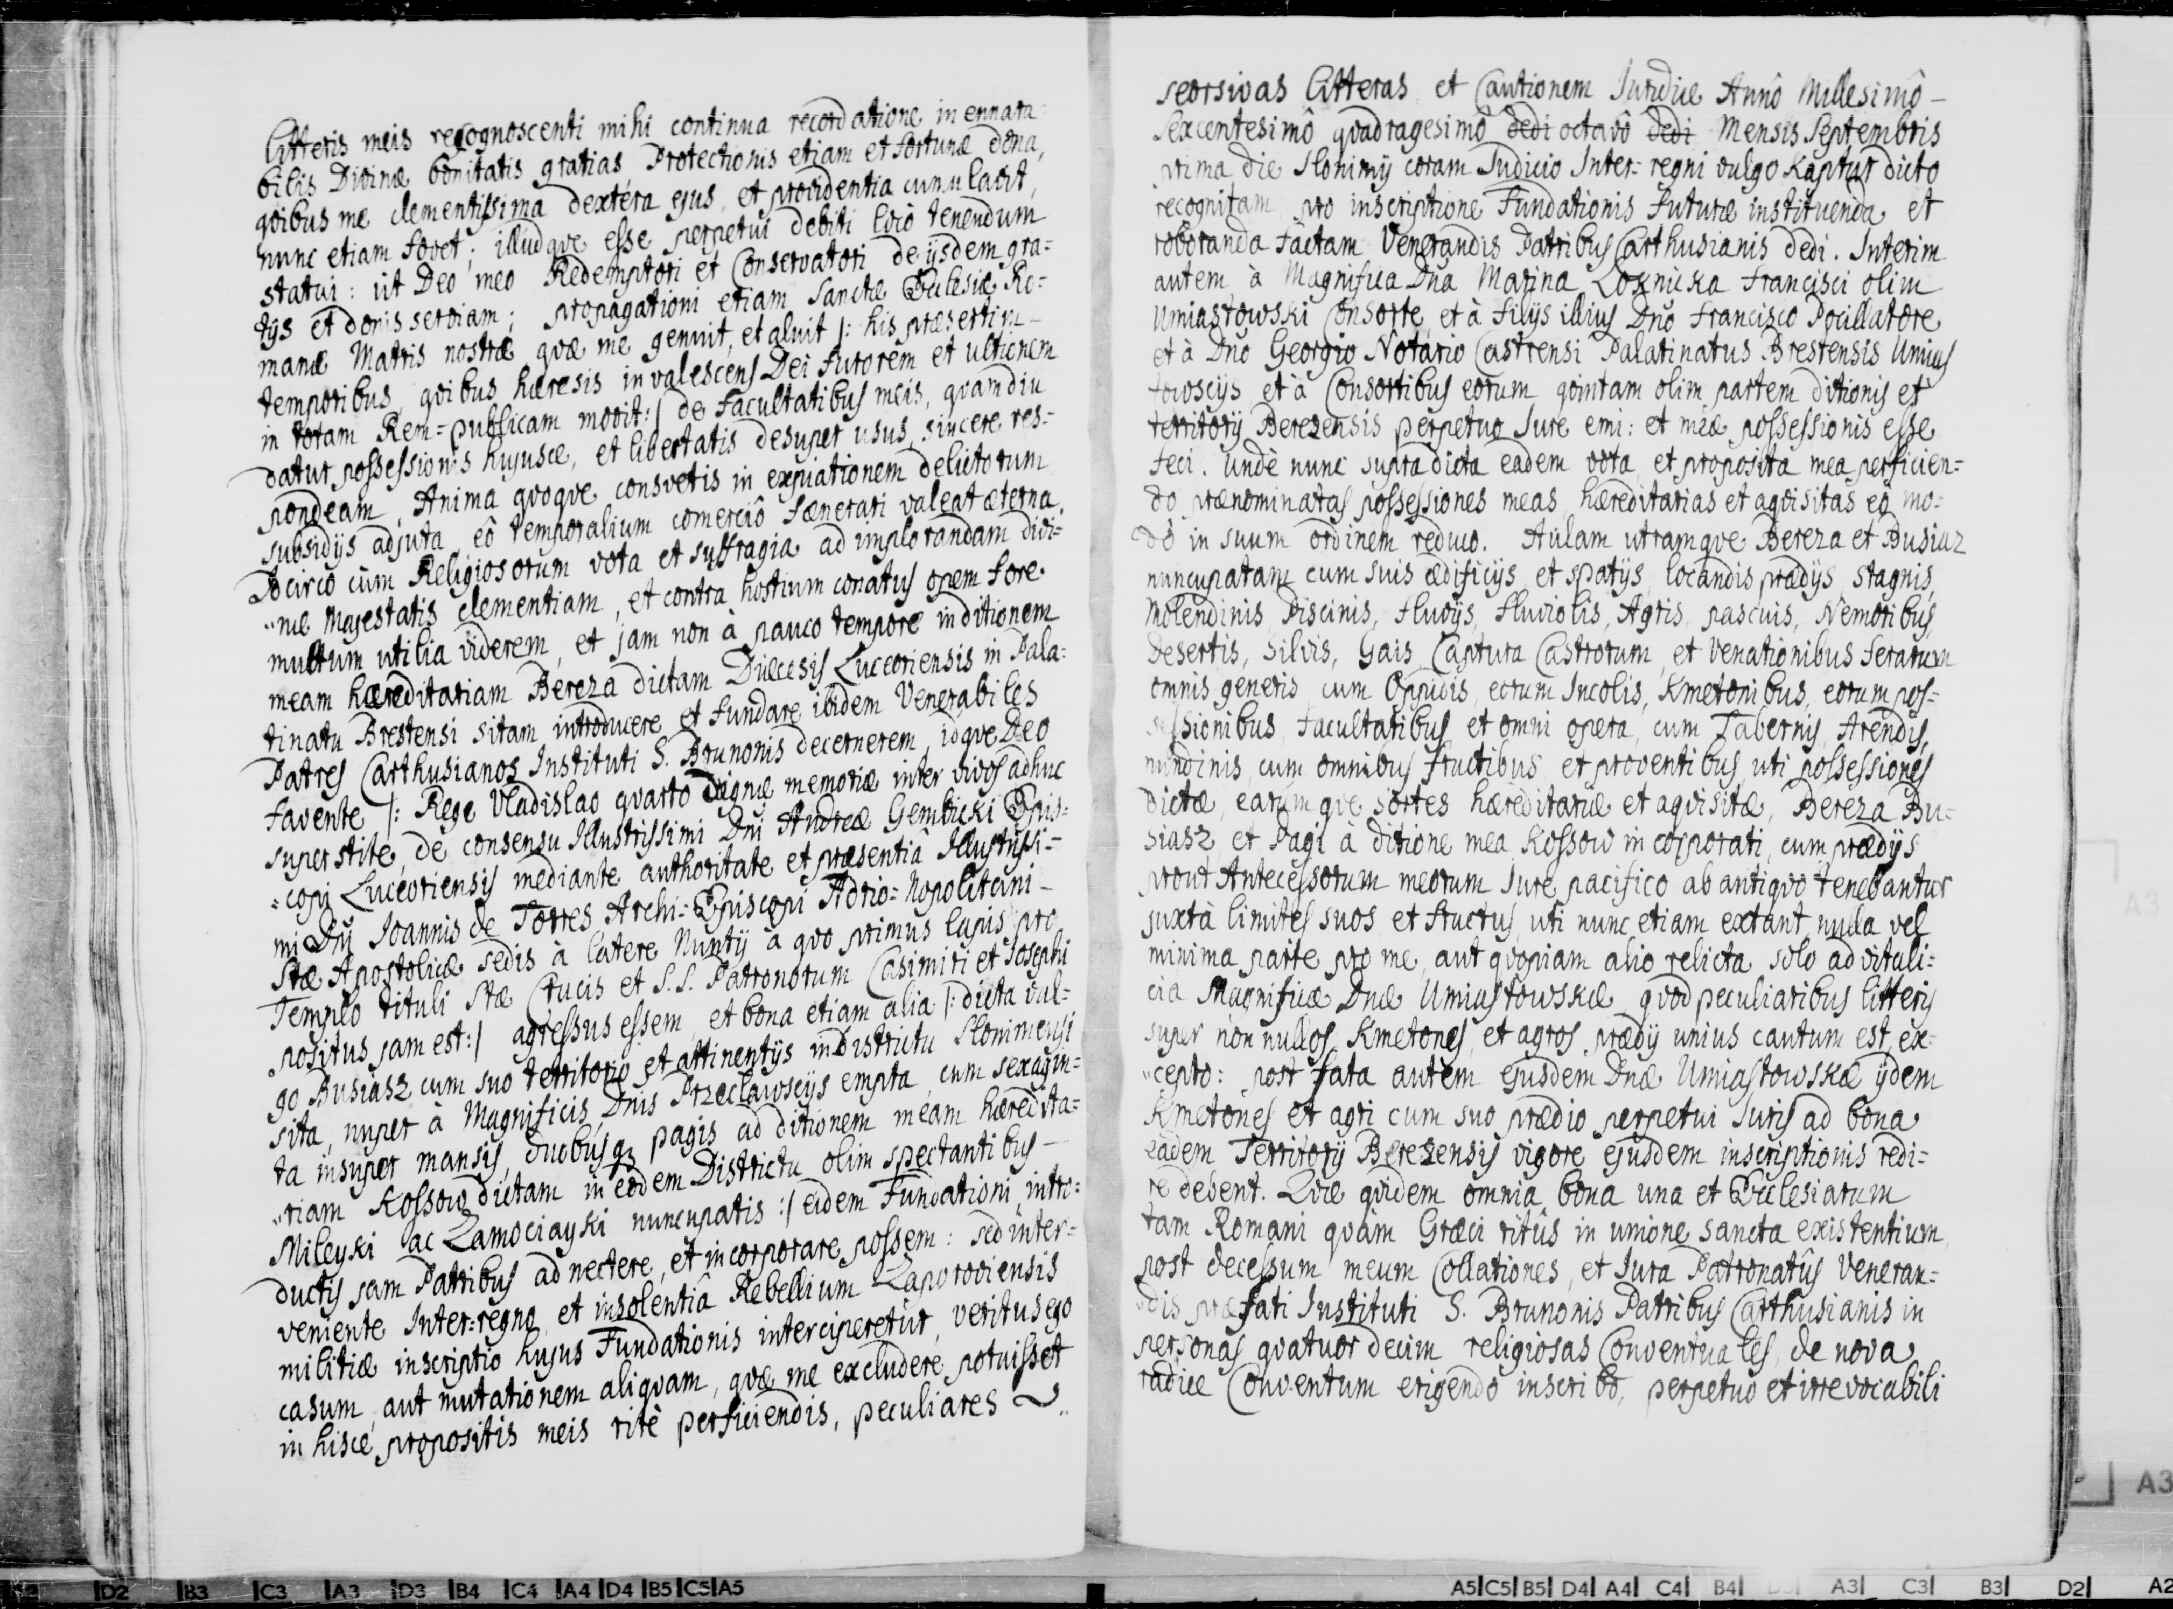 Litteris meis recognoscenti mihi continua recordatione inennara-
bilis Divinæ bonitatis gratias, Protectionis etiam et fortunæ dona,
qvibus me clementissima dextera ejus, et providentia cumulavit,
nunc etiam fovet; illudqve esse perpetui debiti loco tenendum
statui: ut Deo meo Redemptori et Conservatori de ijsdem gra=
tijs et donis serviam; propagationi etiam Sanctæ Ecclesiæ Ro=
manæ Matris nostræ qvæ me genuit, et aluit /: his præsertim
temporibus qvibus hæresis invalescens Dei furorem et ultionem
in totam Rem=publicam movit:/ de Facultatibus meis, qvamdiu
datur possessionis hujusce, et libertatis desuper usus, sincere res=
pondeam, Anima qvoqve consvetis in expiationem delictorum
subsidijs adjuta eô temporalium comerciô fænerari valeat æterna.
Idcirco cùm Religiosorum vota et suffragia ad implorandam divi=
næ Majestatis clementiam, et contra hostium conatus opem fore
multum utilia viderem, et jam non à pauco tempore in ditionem
meam hæreditariam Bereza dictam Diæcesis Luceoriensis in Pala=
tinatu Brestensi sitam introducere et fundare ibidem Venerabiles
Patres Carthusianos Instituti S. Brunonis decernerem, idqve Deo
favente /: Rege Vladislao qvarto dignæ memoriæ inter vivos adhuc
superstite, de consensu Illustrissimi Dni Andreæ Gembicki Epis=
=copi Luceoriensis mediante authoritate et præsentiâ Illustrissi=
mi Dnj Ioannis de Torres Archi=Episcopi Adrio=nopolitani
Stæ Apostolicæ sedis à latere Nuntij à qvo primus lapis pro
Templo tituli Stæ Crucis et S.S. Patronorum Casimiri et Josephi
positus jam est:/ agressus essem, et bona etiam alia /: dicta vul=
go Busiasz cum suo territorio et attinentijs in Districtu Slonimensi
sita, nuper à Magnificis Dnis Przecławscijs empta, cum sexagin=
ta insuper mansis, duobusq3 pagis ad ditionem meam hæredita=
riam Kossow dictam in eodem Districtu olim spectantibus
Mileyki ac Zamociayki nuncupatis :/ eidem Fundationi, intro=
ductis jam Patribus adnectere, et incorporare possem: sed inter=
veniente Inter=regno, et insolentiâ Rebellium Zaporoviensis
militiæ inscriptio hujus Fundationis interciperetur, veritus ego
casum, aut mutationem aliqvam, qvæ me excludere potuisset
in hisce propositis meis ritè perficiendis, peculiares
seorsivas Litteras et Cautionem Juridice Annô Millesimô
Sexcentesimô qvadragesimô dedi octavô dedi Mensis Septembris
prima die Slonimij coram Judicio Inter=regni vulgo Kaptur dicto
recognitam pro inscriptione Fundationis futuræ instituenda et
roboranda factam Venerandis Patribus Carthusianis dedi. Interim
autem à Magnifica Dna Marina Łoknicka Francisci olim
Umiastowski Consorte, et à filijs illius Dno Francisco Pocillatore
et à Dno Georgio Notario Castrensi Palatinatus Brestensis Umias
towscijs et à Consortibus eorum qvintam olim partem ditionis et
territorij Berezensis perpetuo Jure emi: et meæ possessionis esse
feci. Undè nunc supradicta eadem vota et proposita mea perficien=
do prænominatas possessiones meas hæreditarias et aqvisitas eo mo=
do in suum ordinem reduco. Aulam utramqve Bereza et Busiaz
nuncupatam cum suis ædificijs et spatijs locandis prædijs stagnis,
Molendinis Piscinis, Fluvijs Fluviolis, Agris pascuis, Nemoribus,
Desertis, Silvis, Gais, Captura Castrorum, et Venationibus ferarum
omnis generis cum Oppidis, eorum Incolis, Kmetonibus, eorum pos=
sessionibus Facultatibus et omni opera, cum Tabernis, Arendis,
nundinis, cum omnibus fructibus et proventibus, uti possessiones
dictæ, earumqve sortes hæreditariæ et aqvisitæ, Bereza Bu=
siasz et Pagi à ditione mea Kossow in corporati, cum prædijs
prout Antecessorum meorum Jure pacifico ab antiqvo tenebantur
juxtà limites suos et fructus, uti nunc etiam extant, nulla vel
minima parte pro me, aut qvopiam alio relicta solo ad vitali=
cia Magnificæ Dnæ Umiastowskæ qvod peculiaribus litteris
super non nullos Kmetones, et agros prædij unius cautum est, ex=
cepto: post fata autem ejusdem Dnæ Umiastowskæ ijdem
Kmetones et agri cum suo prædio perpetui Juris ad bona
eadem Territorij Berezensis vigore ejusdem inscriptionis redi=
re debent. Qvæ qvidem omnia bona una et Ecclesiarum
tam Romani qvàm Græci ritûs in unione sancta existentium
post decessum meum Collationes, et Jura Patronatûs Veneran=
dis præfati Instituti S. Brunonis Patribus Carthusianis in
personas qvatuordecim religiosas Conventuales, de nova
radice Conventum erigendo inscribo, perpetuo et irrevocabili